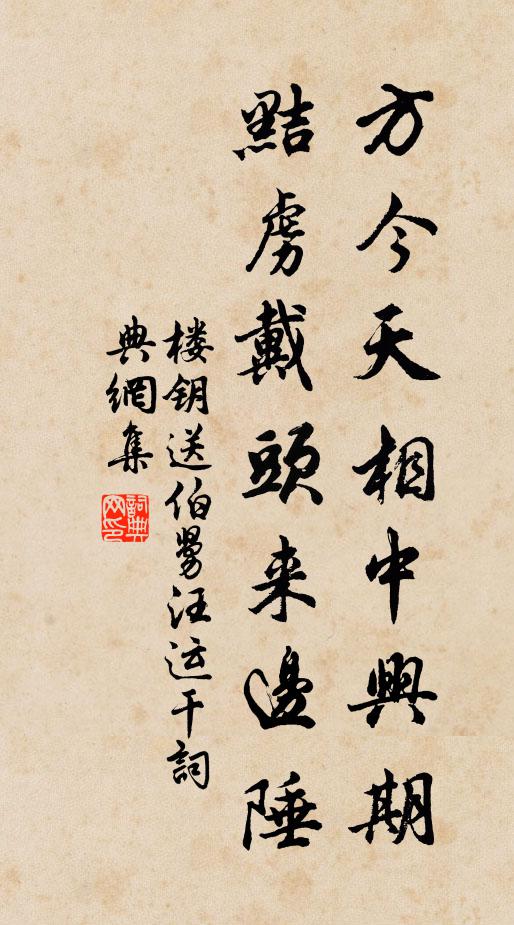 方今天相中興期
黠虜戴頭来邊陲
楼钥送伯舅汪运干詞
典網集
詞典
网印